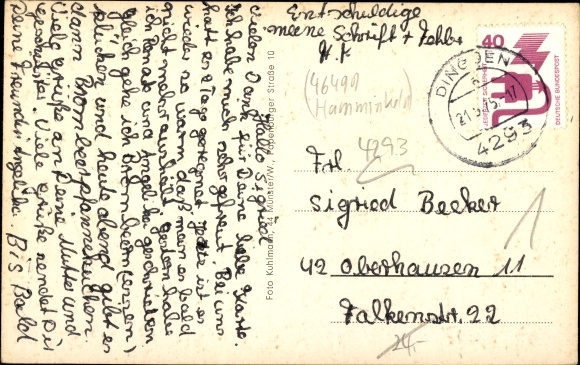 Entschuldige
meine Schrift + Fehler
H. K
Hallo Sigried
vielen Dank für Deine liebe Karte.
Ich habe mich sehr gefreut. Bei uns
hatt es Tage geregnet jetzt ist es
wieder so warm daß man es bald
nicht mehr aushält gestern habe
ich Renate und Angelika geschrieben
gleich gehe ich Brombeern (essen)
pflücken und heute abend gibt es
dann Brombeerpfannekuchen.
Viele Grüße an Deine Mutter und
Geschwister. Viele Grüße sendet Dir
Deine Freundin Angelika Bis Bald
Foto Kuhlmann, 44 Münster/W., Papenburger Straße 10
40
DEUTSCHE BUNDESPOST
JEDERZEIT SICHERHEIT
DINGDEN
4293
(46499
Hamminkeln)
4293
Frl.
Sigried Becker
42 Oberhausen 11
Falkenstr. 22
1
24,-